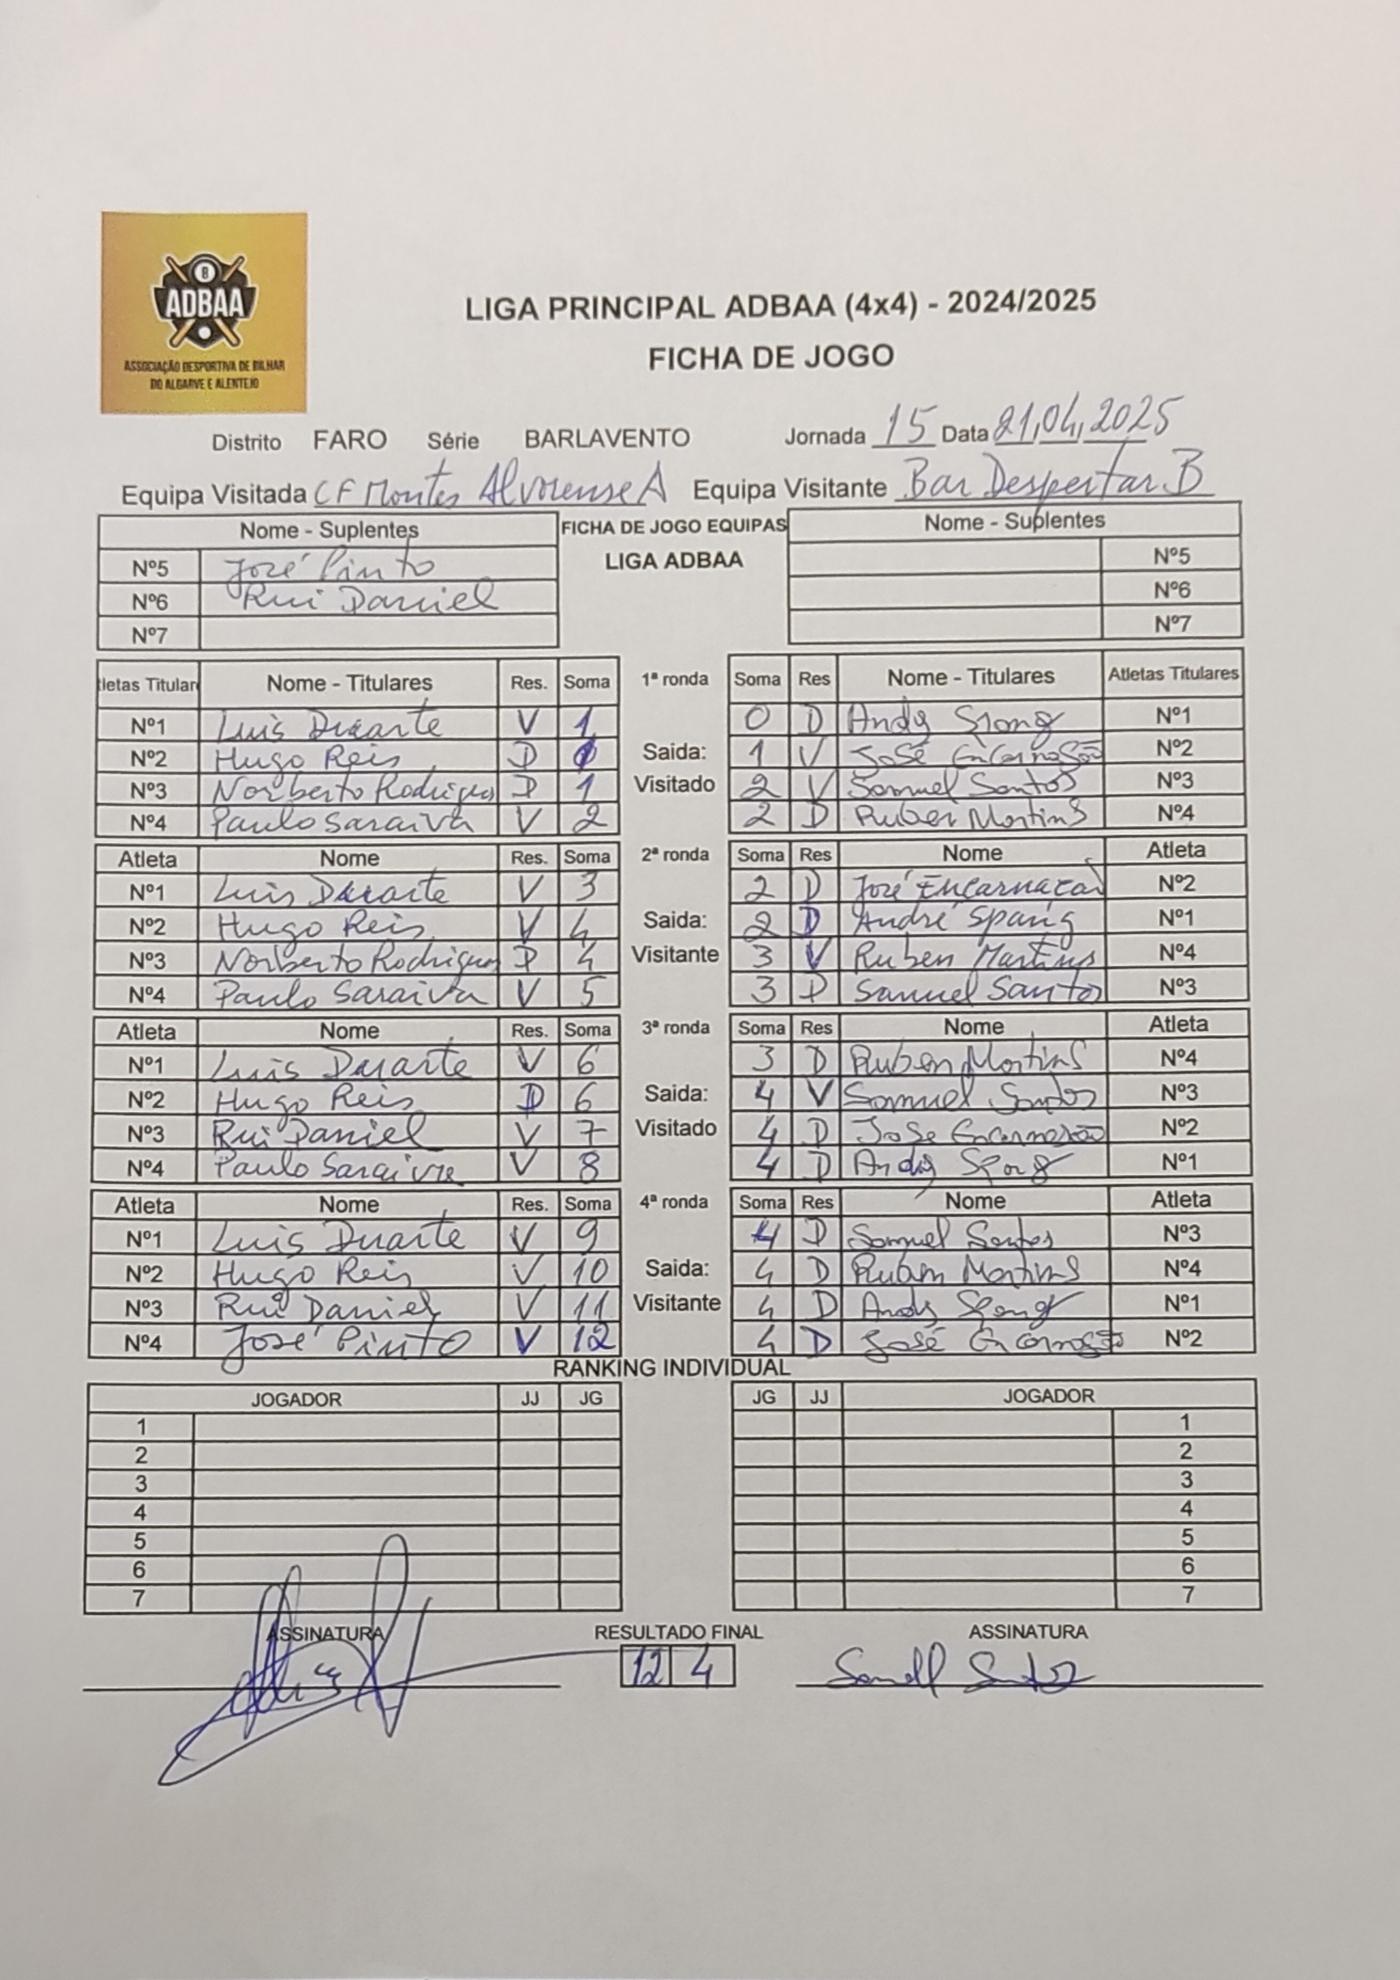 8
ADBAA
ASSOCIAÇÃO DESPORTIVA DE BILHAR
DO ALGARVE E ALENTEJO
LIGA PRINCIPAL ADBAA (4x4) - 2024/2025
FICHA DE JOGO
Distrito FARO Série BARLAVENTO Jornada 15 Data 21,04,2025
Equipa Visitada CF Montes Alvorense A Equipa Visitante Bar Despertar B
Nome - Suplentes FICHA DE JOGO EQUIPAS Nome - Suplentes
Nº5 José Pinto LIGA ADBAA Nº5
Nº6 Rui Daniel Nº6
Nº7 Nº7
letas Titular Nome - Titulares Res. Soma 1ª ronda Soma Res Nome - Titulares Atletas Titulares
Nº1 Luis Duarte V 1 0 D Andy Spong Nº1
Nº2 Hugo Reis D 1 Saida: 1 V José Encarnação Nº2
Nº3 Norberto Rodrigues D 1 Visitado 2 V Samuel Santos Nº3
Nº4 Paulo Saraiva V 2 2 D Ruben Martins Nº4
Atleta Nome Res. Soma 2ª ronda Soma Res Nome Atleta
Nº1 Luis Duarte V 3 2 D José Encarnaçaõ Nº2
Nº2 Hugo Reis V 4 Saida: 2 D André Spang Nº1
Nº3 Norberto Rodrigues D 4 Visitante 3 V Ruben Martins Nº4
Nº4 Paulo Saraiva V 5 3 D Samuel Santos Nº3
Atleta Nome Res. Soma 3ª ronda Soma Res Nome Atleta
Nº1 Luis Duarte V 6 3 D Ruben Martins Nº4
Nº2 Hugo Reis D 6 Saida: 4 V Samuel Santos Nº3
Nº3 Rui Daniel V 7 Visitado 4 D José Encarnação Nº2
Nº4 Paulo Saraiva V 8 4 D Andy Spong Nº1
Atleta Nome Res. Soma 4ª ronda Soma Res Nome Atleta
Nº1 Luis Duarte V 9 4 D Samuel Santos Nº3
Nº2 Hugo Reis V 10 Saida: 4 D Ruben Martins Nº4
Nº3 Rui Daniel V 11 Visitante 4 D Andy Spong Nº1
Nº4 José Pinto V 12 4 D José Encarnação Nº2
RANKING INDIVIDUAL
JOGADOR JJ JG JG JJ JOGADOR
1 1
2 2
3 3
4 4
5 5
6 6
7 7
ASSINATURA RESULTADO FINAL ASSINATURA
12 4 Samuel Santos